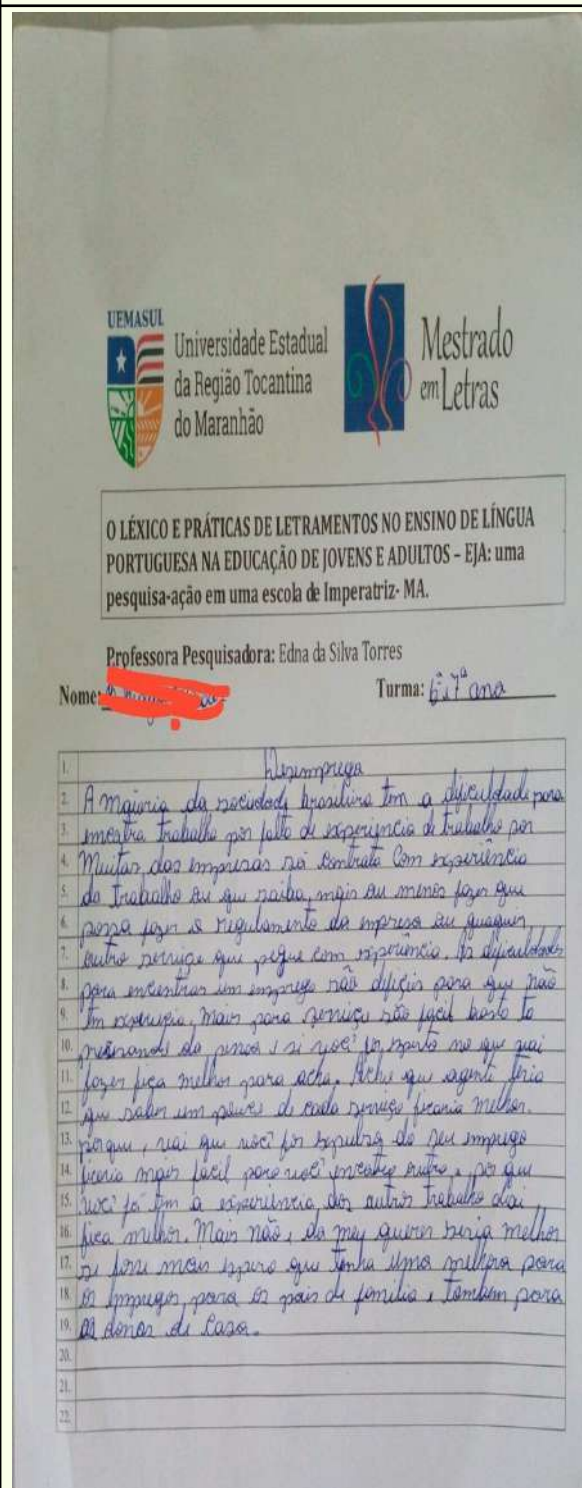 UEMASUL
Universidade Estadual
da Região Tocantina
do Maranhão
Mestrado
em Letras
O LÉXICO E PRÁTICAS DE LETRAMENTOS NO ENSINO DE LÍNGUA
PORTUGUESA NA EDUCAÇÃO DE JOVENS E ADULTOS – EJA: uma
pesquisa-ação em uma escola de Imperatriz- MA.
Professora Pesquisadora: Edna da Silva Torres
Nome: Turma: 6º e 7º ano
1. Desemprego
2. A maioria da sociedade brasileira tem a dificuldade para
3. emcotra trabalho por falta de experiencia de trabalho por
4. Muitas das empresas só contrata Com experiência
5. do trabalho ou que saiba, mais ou menos fazer que
6. possa fazer o regulamento da empresa ou quaquer
7. outro serviço que pegue com esperiencia. As dificuldades
8. para encontrar um emprego são difíçis para que não
9. tm experiencia, Mais para serviço são facil basta ta
10. presisando da pesoa e si você for esperto no que vai
11. fazer fiça melhor para acha. Acho que agente teria
12. que saber um pouco de cada serviço ficaria melhor.
13. porque, vai que você for do seu imprego
14. ficaria mais facil para você outro, por que
15. você já tm a experiencia dos outros trabalho dai
16. fica melhor. Mais não e do meu querer seria melhor
17. se fose mais espero que tenha uma melhora para
18. os empregos, para os pais de familia e tambem para
19. as donas de Casa.
20.
21.
22.